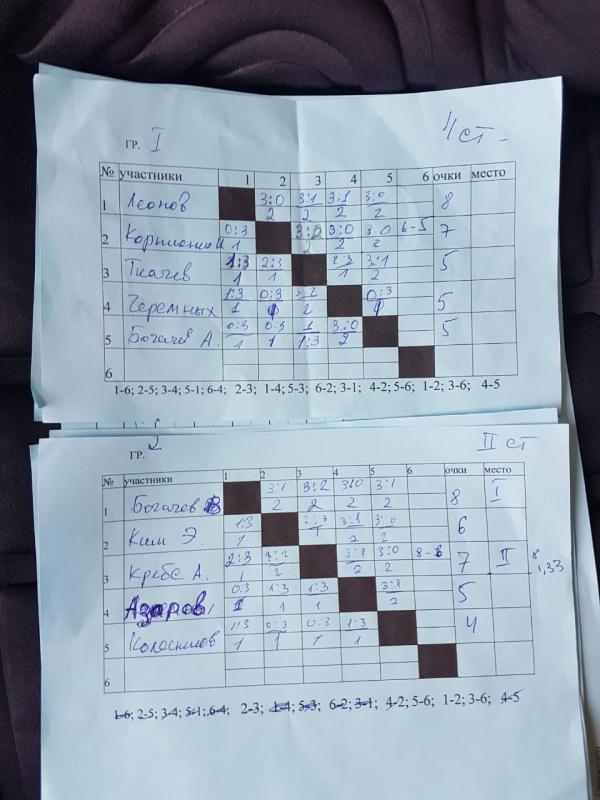 ГР. I 4 ст-
№ участники 1 2 3 4 5 6 очки место
1 Леонов 3:0 3:1 3:1 3:0 8
2 2 2 2
2 0:3 3:0 3:0 3 0 6-5 7
1 2 2 2
3 Ткачев 1:3 2:3 2:3 3:1 5
1 1 1 2
4 Черемных 1:3 0:3 3:2 0:3 5
1 1 2 1
5 Богачев А. 0:3 0:3 1 3:0 5
1 1 1:3 2
6
1-6; 2-5; 3-4; 5-1; 6-4; 2-3; 1-4; 5-3; 6-2; 3-1; 4-2; 5-6; 1-2; 3-6; 4-5
ГР. II ст
№ участники 1 2 3 4 5 6 очки место
1 Богачев В 3:1 3:2 3:0 3:1 8 I
2 2 2 2
2 Ким Э. 1:3 2:3 3:1 3:0 6
1 1 2 2
3 Кребс А. 2:3 3:2 3:1 3:0 8-6 7 II 8
1 2 2 2 1,33
4 Азаров 0:3 1:3 1:3 3:1 5
1 1 1 2
5 Колосников 1:3 0:3 0:3 1:3 4
1 1 1 1
6
1-6; 2-5; 3-4; 5-1; 6-4; 2-3; 1-4; 5-3; 6-2; 3-1; 4-2; 5-6; 1-2; 3-6; 4-5